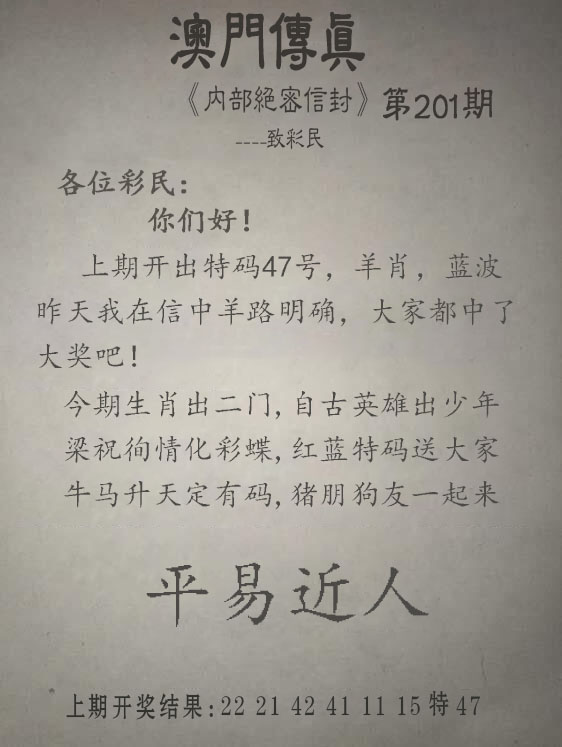 澳門傳眞
《内部絕密信封》第201期
----致彩民
各位彩民：
你们好！
上期开出特码47号，羊肖，蓝波
昨天我在信中羊路明确，大家都中了
大奖吧！
今期生肖出二门,自古英雄出少年
梁祝徇情化彩蝶,红蓝特码送大家
牛马升天定有码,猪朋狗友一起来
平易近人
上期开奖结果:22 21 42 41 11 15特47